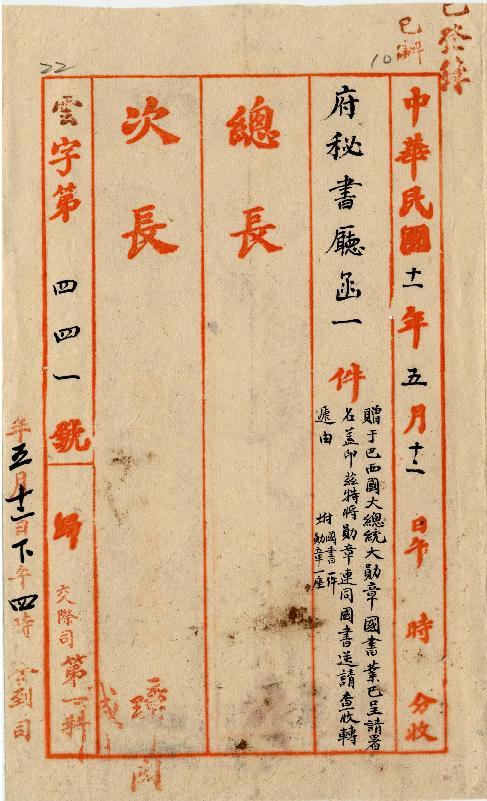 已登簿
已辦
10
22
中華民國十一年五月十二日午時分收
府秘書廳函一件
贈于巴西國大總統大勛章國書業已呈請署
名蓋印茲特將勛章連同國書送請查收轉
遞由
附國書一件
勛章一座
總長
次長
雲字第四四一號歸
交際司第一科
年五月十二日下午四時
到司